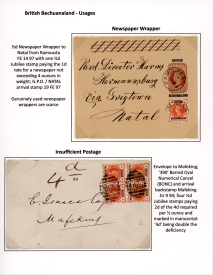 British Bechuanaland - Usages
Newspaper Wrapper
½d Newspaper Wrapper to
Natal from Ramoutsa
FE 14 97 with one ½d
Jubilee stamp paying the 1d
rate for a newspaper not
exceeding 4 ounces in
weight; G.P.O. / NATAL
arrival stamp 19 FE 97
Genuinely used newspaper
wrappers are scarce
Red. Director Harms
Hermannsburg
via Greytown
Natal
Insufficient Postage
4d
Mafeking
Envelope to Mafeking;
'890' Barred Oval
Numerical Cancel
(BONC) and arrival
backstamp Mafeking
JU 9 94; four ½d
Jubilee stamps paying
2d of the 4d required
per ½ ounce and
marked in manuscript
'4d' being double the
deficiency